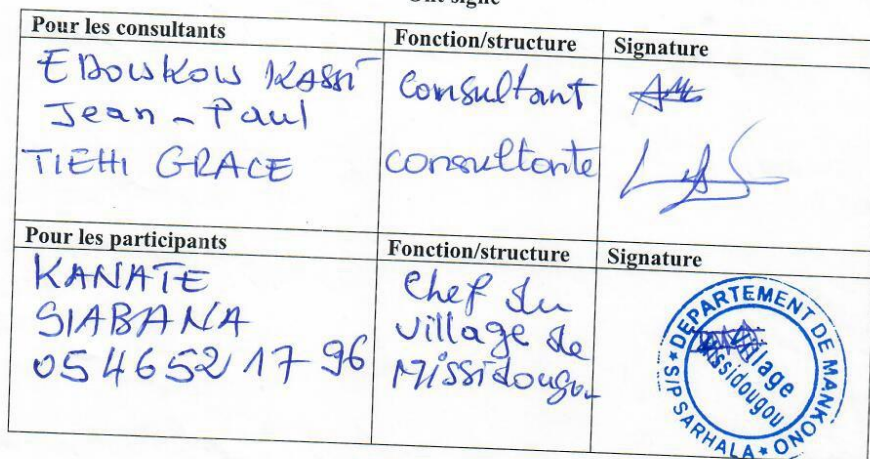 Ont signé
Pour les consultants
Fonction/structure
Signature
EBOUKOU KASSI
Jean-Paul
Consultant
TIEHI GRACE
consultante
Pour les participants
Fonction/structure
Signature
KANATE
SIABANA
05 46 52 17 96
Chef du
village de
Missidougou
DEPARTEMENT DE MANKONO
S/P SARHALA
Village
Missidougou